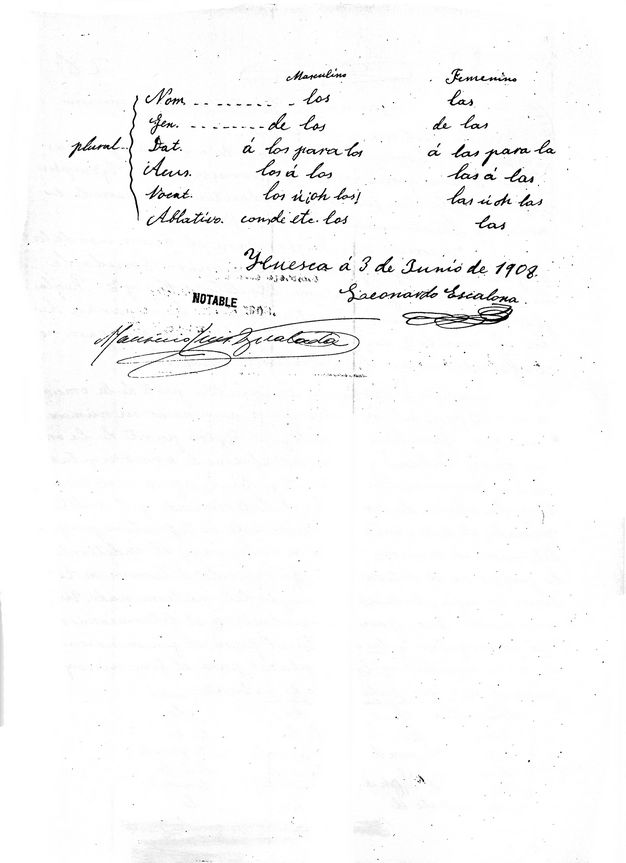 Masculino Femenino
Nom. - - - - - - - - - los las
Gen. - - - - - - - - de los de las
plural Dat. á los para los á las para la
Acus. los á los las á las
Vocat. los ú ¡oh los! las ú oh las
Ablativo. con de etc. los las
Huesca á 3 de Junio de 1908.
Leonardo Escalona
NOTABLE